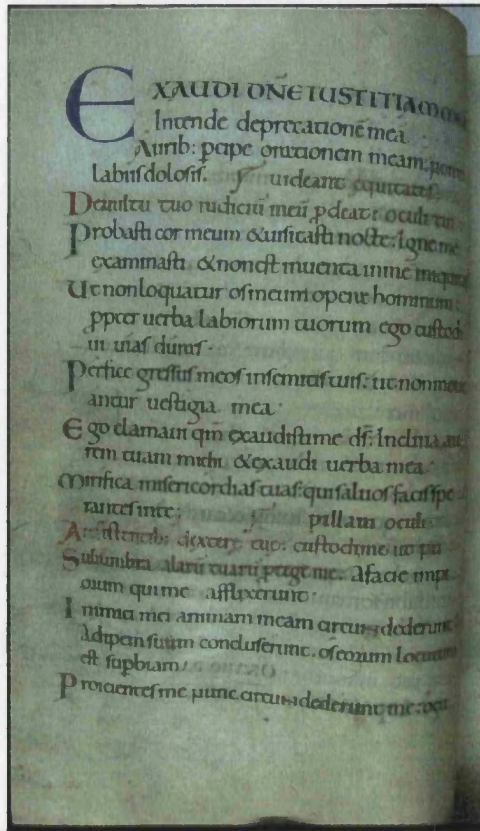 EXAUDI DÑE IUSTITIAM meā
Intende deprecationē mea
Aurib: pcipe orationem meam: non
labiis dolosis. uideant equitatē:
De uultu tuo iudiciū meū pdeat: oculi tui
Probasti cor meum & uisitasti nocte: Igne me
examinasti & non est inuenta in me iniquitas
Ut non loquatur os meum opera hominum:
ppter uerba labiorum tuorum ego custodi
ui uias duras.
Perfice gressus meos in semitis tuis: ut non moue
antur uestigia mea.
Ego clamaui qm̄ exaudisti me ds̄: Inclina au
rem tuam michi & exaudi uerba mea.
Mirifica misericordias tuas: qui saluos facis spe
rantes in te: pillam oculi
A resistentib: dextere tue: custodi me ut pu
Sub umbra alarū tuarū ptege me. A facie impi
orum qui me afflixerunt.
Inimici mei animam meam circumdederunt
Adipem suum concluserunt. os eorum locutum
est supbiam.
Proicientes me nunc circumdederunt me: ocu